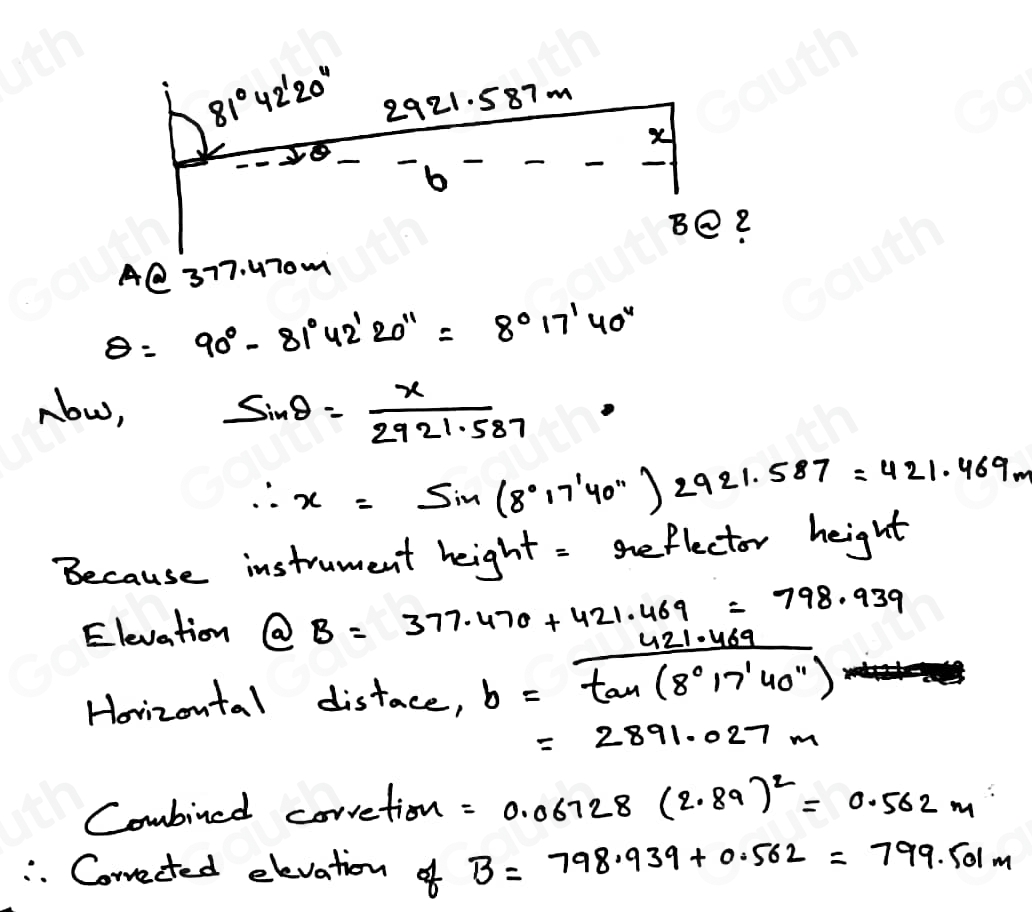 81°42'20"
2921.587m
x
θ
b
B@ ?
A@ 377.470m
θ = 90° - 81°42'20" = 8°17'40"
Now, Sinθ = x / 2921.587
∴ x = Sin (8°17'40") 2921.587 = 421.469m
Because instrument height = reflector height
Elevation @ B = 377.470 + 421.469 = 798.939
Horizontal distace, b = 421.469 / tan (8°17'40")
= 2891.027 m
Combined corretion = 0.06728 (2.89)² = 0.562 m
∴ Corrected elevation of B = 798.939 + 0.562 = 799.501m